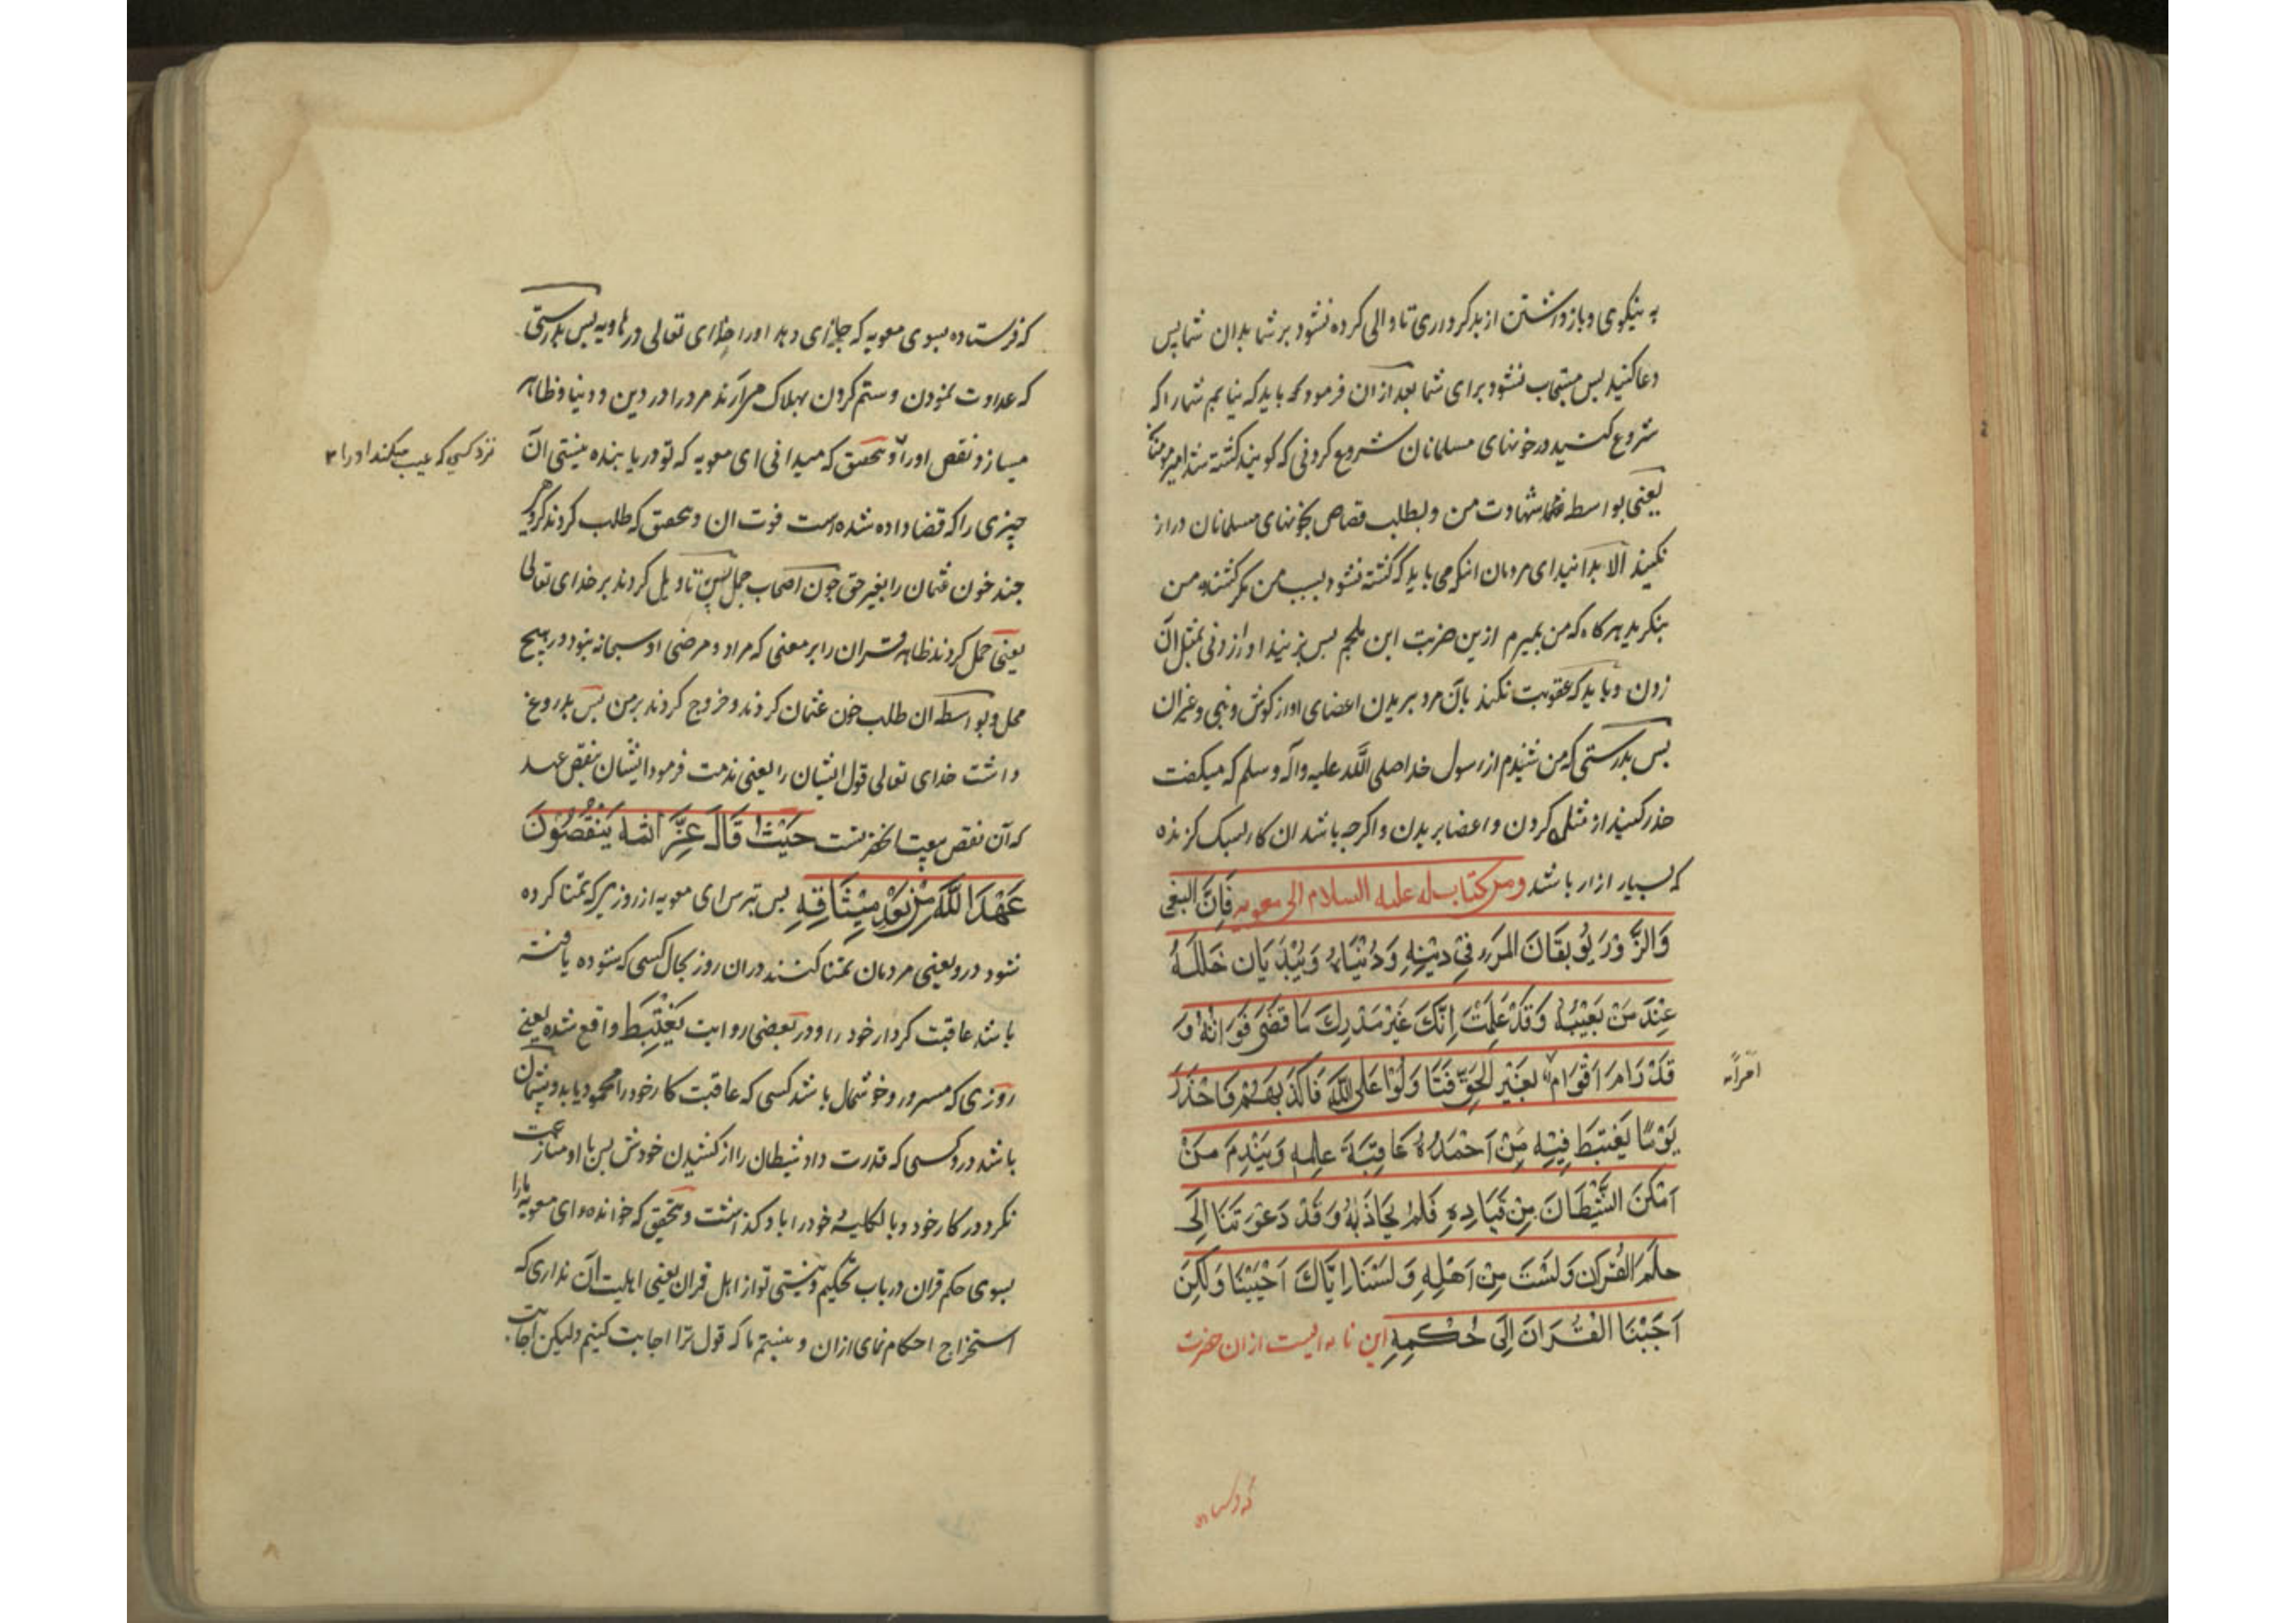 به نیکوی و بازداشتن از بدکرداری تا والی کرده نشود بر شما بدان شما پس
دعا کنید پس مستجاب نشود برای شما بعد از ان فرمود که باید که نیابم شما را که
شروع کنید در خونهای مسلمانان شروع کردنی که کویند کشته شد امیرمومنان
یعنی بواسطه شهادت من و بطلب قصاص خونهای مسلمانان دراز
نکنید الا بدانید ای مردمان انکه می باید که کشته نشود بسبب من مکر کشنده من
بنکرید هرکاه که من بمیرم ازین ضربت ابن ملجم پس بزنید او را زدنی بمثل آن
زدن و باید که عقوبت نکنند بآن مرد ببریدن اعضای او از کوش و بینی و غیر ان
پس بدرستی که من شنیدم از رسول خدا صلی الله علیه و آله و سلم که میکفت
حذر کنید از مثله کردن و اعضا بریدن و اکرچه باشد ان کار بسک کزنده
که بسیار ازار باشد ومن کتاب له علیه السلام الی معویه فَاِنَّ البغی
وَالزَّوْرَ یُوبِقَانَ المَرَء فِی دِیْنِهِ وَدُنْیَاهُ وَیُبْدَیَان خَلَلَهُ
عِنْدَ مَنْ یَعِیْبُهُ وَقَدْ عَلِمْتَ اِنَّكَ غَیْرَ مُدْرِكَ مَا قُضِیَ فَوَاتُهُ وَ
قَدْ رَامَ اَقْوَامٌ بِغَیْرِ الْحَقِّ فَتَاَوَلُوْا عَلَی اللّهِ فَاَکْذَبَهُمْ فَاحْذَرْ
امراً
یَوْمًا یَغْتَبِطُ فِیْهِ مَنْ اَحْمَدَ عَاقِبَةَ عَمَلِهِ وَیَنْدِمَ مَنْ
اَمْکَنَ الشَّیْطَانَ مِنْ قِیَادِهِ فَلَمْ یُجَاذِبْهُ وَقَدْ دَعَوْتَنَا اِلَی
حکْمِ القُرآن وَلَسْتَ مِنْ اَهْلِهِ وَلَسْنَا اِیَّاكَ اَجَبْنَا وَلٰکِنْ
اَجَبْنَا الْقُرَانَ اِلَی حُکْمِهِ این نامه ایست از ان حضرت
که فرستاده بسوی معویه که جزای دهد او را خدای تعالی در هاویه پس بدرستی
که عداوت نمودن و ستم کردن بهلاک می آرند مرد را در دین و دنیا و ظاهر
میسازد نقص او را و بتحقیق که میدانی ای معویه که تو دریابنده نیستی آن
نزد کسی که عیب میکند او را
چیزی را که قضا داده شده است فوت ان و بتحقیق که طلب کردند کروهی
چند خون عثمان را بغیر حق چون اصحاب جمل پس تاویل کردند بر خدای تعالی
یعنی حمل کردند ظاهر قران را بر معنی که مراد و مرضی او سبحانه نبود در هیچ
محل و بواسطه ان طلب خون عثمان کردند و خروج کردند بر من پس بدروغ
داشت خدای تعالی قول ایشان را یعنی مذمت فرمود ایشان بنقض عهد
که آن نقض بیعت انحضرتست حَیْثُ قَالَ عَزَّ اسْمُهُ یَنْقُضُوْنَ
عَهْدَ اللّهِ مِنْ بَعْدِ مِیْثَاقِهِ پس بترس ای معویه از روزی که تمنا کرده
شود درو یعنی مردمان تمنا کنند دران روز بحال کسی که ستوده یافته
باشد عاقبت کردار خود را و در بعضی روایت یَغْتَبِطُ واقع شده یعنی
روزی که مسرور و خوشحال باشد کسی که عاقبت کار خود را محمود یابد و پشیمان
باشد درو کسی که قدرت داد شیطان را از کشیدن خودش پس با او منازعت
نکرد در کار خود و بالکلیه خود را باو کذاشت و بتحقیق که خوانده ای معویه ما را
بسوی حکم قران در باب تحکیم و نیستی تو از اهل قران یعنی اهلیت آن نداری که
استخراج احکام نمای ازان و نیستیم ما که قول ترا اجابت کنیم ولیکن اجابت